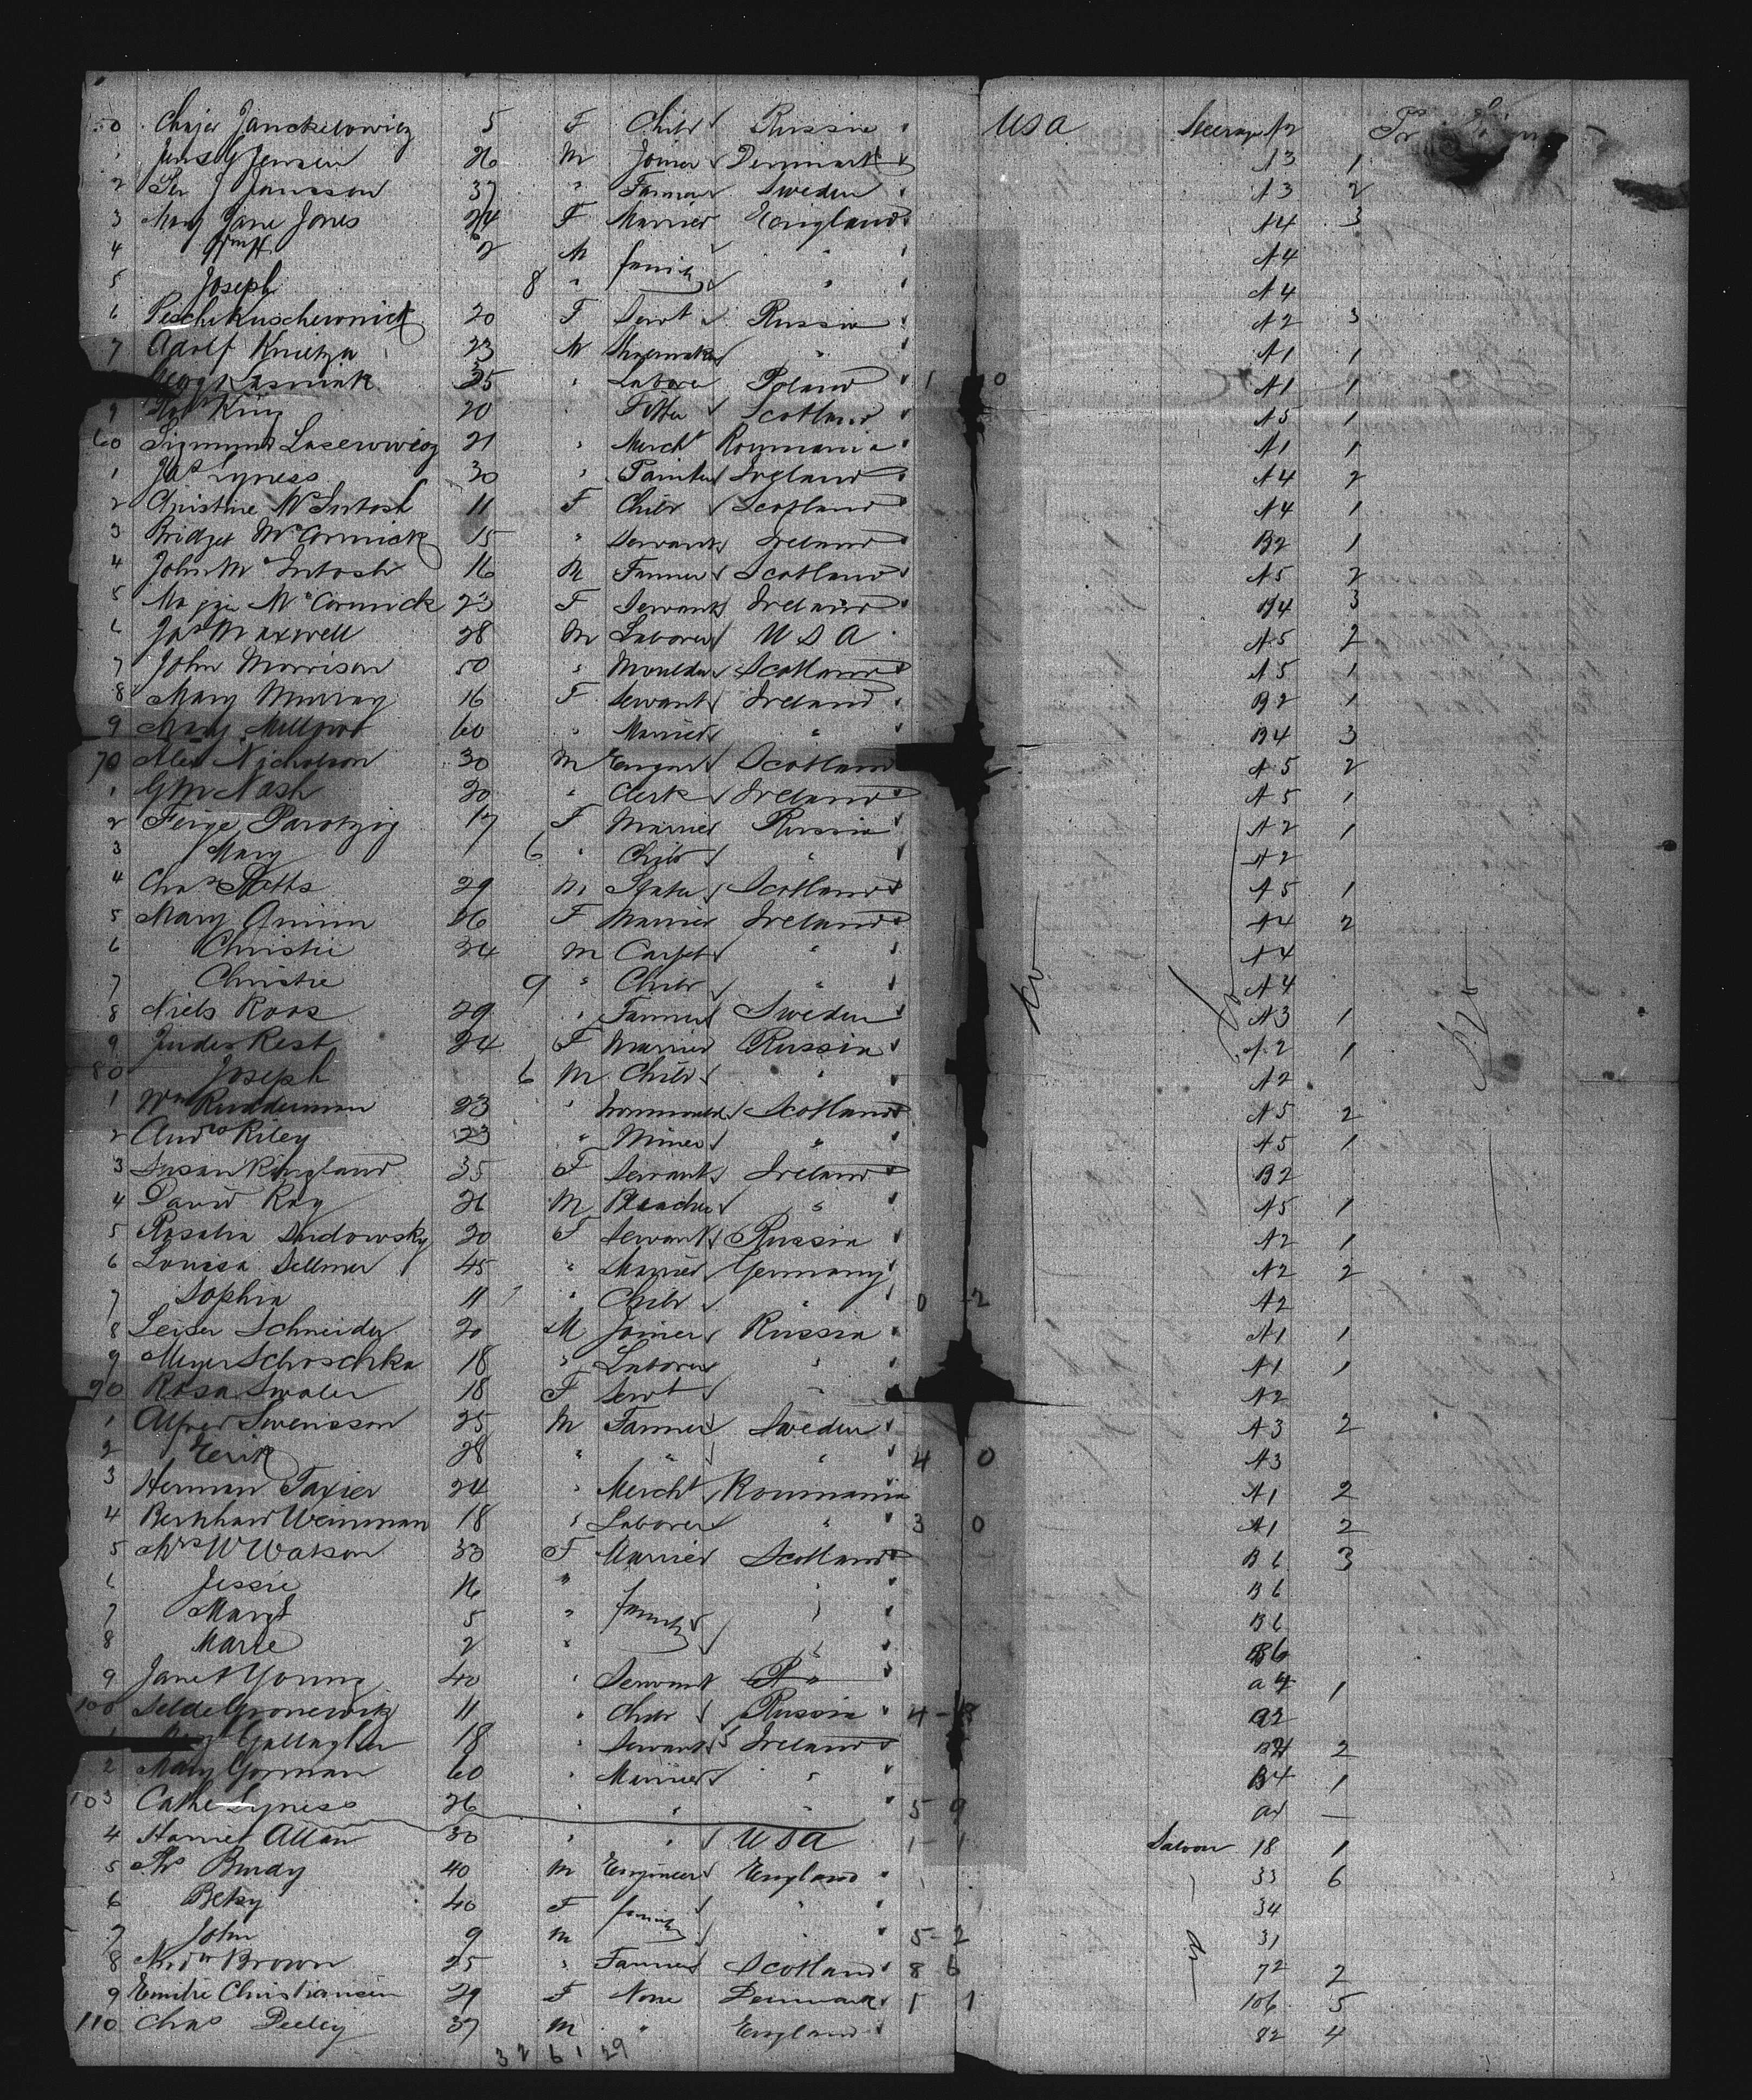 50 Chajer Janckelowicz 5 F Child Russia USA Steerage A2
1 Jens G Jensen 26 M Joiner Denmark A3 1
2 Per J Jansson 37 " Farmer Sweden A3 2
3 Mary Jane Jones 24 F Married England A4 3
4 Wm H 2 M family " A4
5 Joseph 8 " " A4
6 Peschi Kuschewnick 20 F Servt Russia A2 3
7 Adolf Knietza 23 M Shoemaker " A1 1
Kasniak 35 " Laborer Poland 1 0 A1 1
9 Robt King 20 " Fitter Scotland A5 1
60 Sigmund Laserwvicz 21 " Mercht Roumania A1 1
1 Jas Lyness 30 " Painter Ireland A4 2
2 Christine McIntosh 11 F Child Scotland A4 1
3 Bridget McCormick 15 " Servant Ireland B2 1
4 John McIntosh 16 M Farmer Scotland A5 2
5 Maggie McCormick 23 F Servant Ireland B4 3
6 Jas Maxwell 28 M Laborer USA A5 2
7 John Morrison 50 " Moulder Scotland A5 1
8 Mary Murray 16 F Servant Ireland B2 1
9 Mary 60 " Married " B4 3
70 Alex Nicholson 30 M Engnr Scotland A5 2
1 G M Nash 20 " Clerk Ireland A5 1
2 Feige Parotzig 17 F Married Russia A2 1
3 Mary 6 " Child " A2
4 Chas 29 M Slater Scotland A5 1
5 Mary Quinn 26 F Married Ireland A4 2
6 Christie 24 M Carpt " A4
7 Christie 9 " Child " A4
8 Niels Roos 29 " Farmer Sweden A3 1
9 Juder Rest 24 F Married Russia A2 1
80 Joseph 6 M Child " A2
1 Wm Rudderman 23 " Ironmoulder Scotland A5 2
2 Andrw Riley 23 " Miner " A5 1
3 Susan Ringland 35 F Servant Ireland B2
4 David Roy 26 M Bleacher " A5 1
5 Rosalia Sudowsky 20 F Servant Russia A2 1
6 Louisa Sellmer 45 " Married Germany A2 2
7 Sophia 11 " Child " 0 2 A2
8 Leiser Schneider 20 M Joiner Russia A1 1
9 Meyer Schoschka 18 " Laborer " A1 1
90 Rosa Swaler 18 F Servt " A2
1 Alfred Swensson 25 M Farmer Sweden A3 2
2 Erik 28 " " " 4 0 A3
3 Herman Taxier 24 " Mercht Roumania A1 2
4 Bernhard Weinman 18 " Laborer " 3 0 A1 2
5 Mrs W Watson 33 F Married Scotland B6 3
6 Jessie 16 " family " B6
7 Margt 5 " " B6
8 Marie 2 " " B6
9 Janet Young 40 " Servant " a4 1
100 Selde Gronewik 11 " Child Russia 4 - 8 a2
1 Gallagher 18 " Servant Ireland B4 2
2 Mary Gorman 60 " Married " B4 1
103 Cathe Lyness 26 " " " 5 9 —
4 Harriet Allan 30 " " USA 1 - 1 Saloon 18 1
5 Ths Bundy 40 M Engineer England 33 6
6 Betsy 40 F family " 34
7 John 9 M " 5 - 2 31
8 Brown 25 " Farmer Scotland 8 6 72 2
9 Emilie Christiansen 29 F None Denmark 1 1 106 5
110 Chas Peeley 37 M " England 82 4
32 61 29